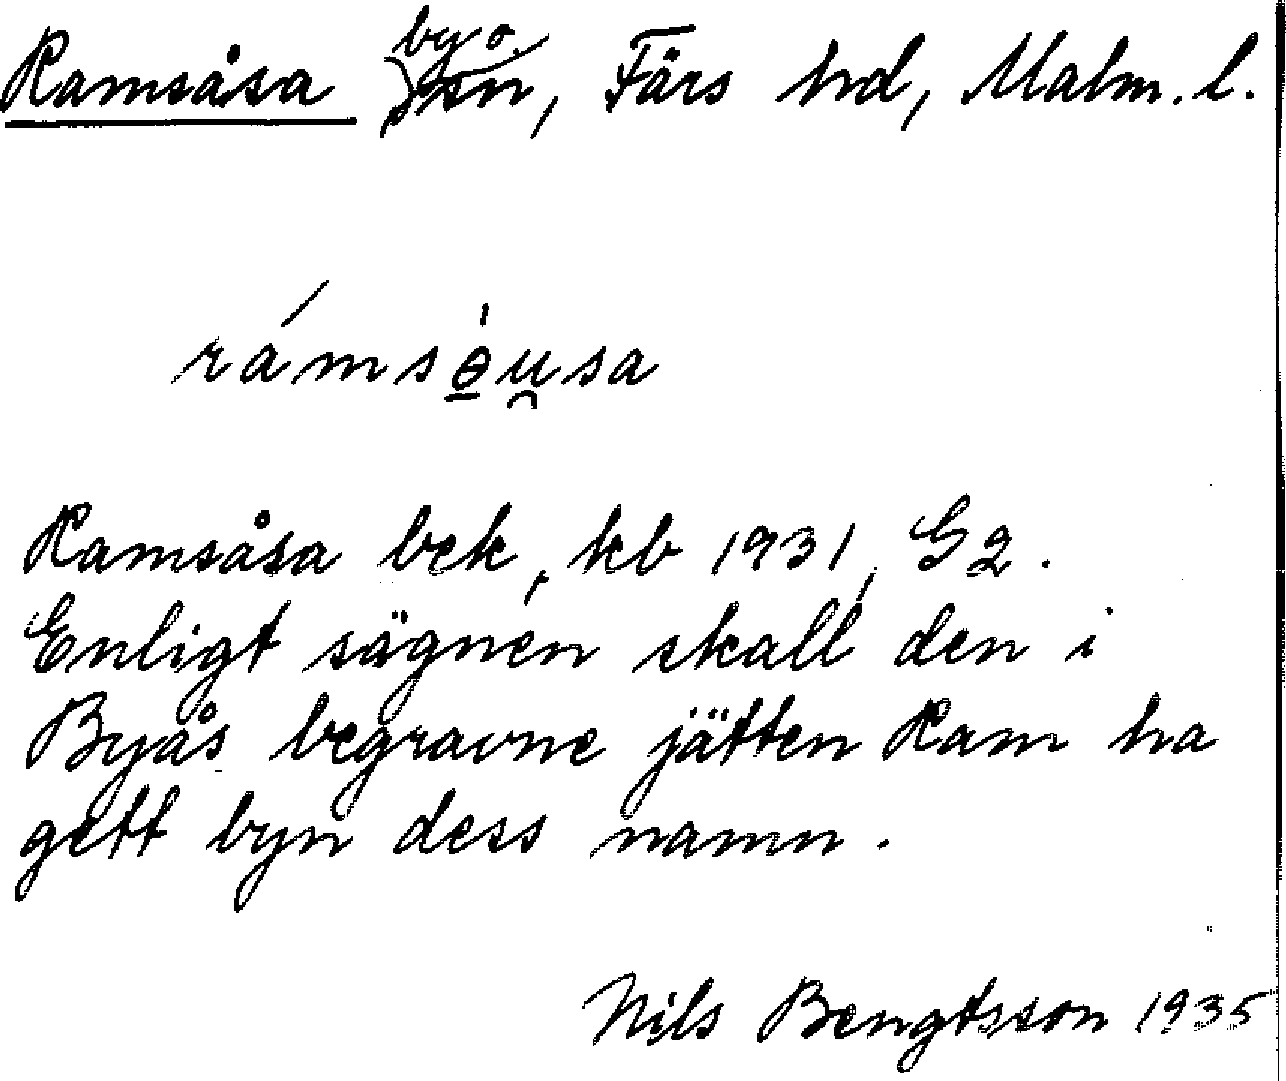 Ramsåsa by o. sn, Färs hd, Malm. l.
rámsө̲́u̯sa
Ramsåsa bek, kb 1931, G2.
Enligt sägnen skall den i
Byås begravne jätten Ram ha
gett byn dess namn.
Nils Bengtsson 1935